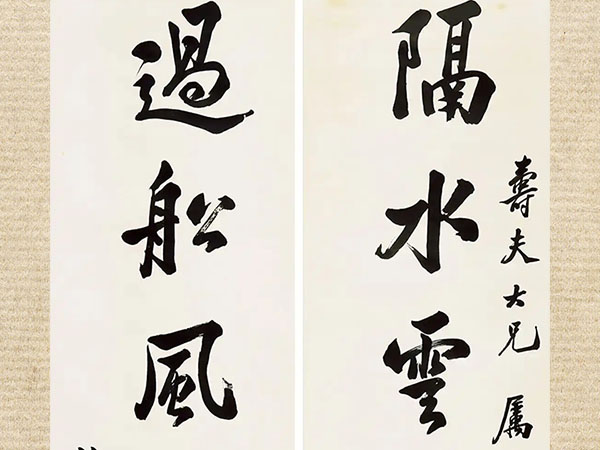 壽夫大兄 属
隔水雲
過舩風